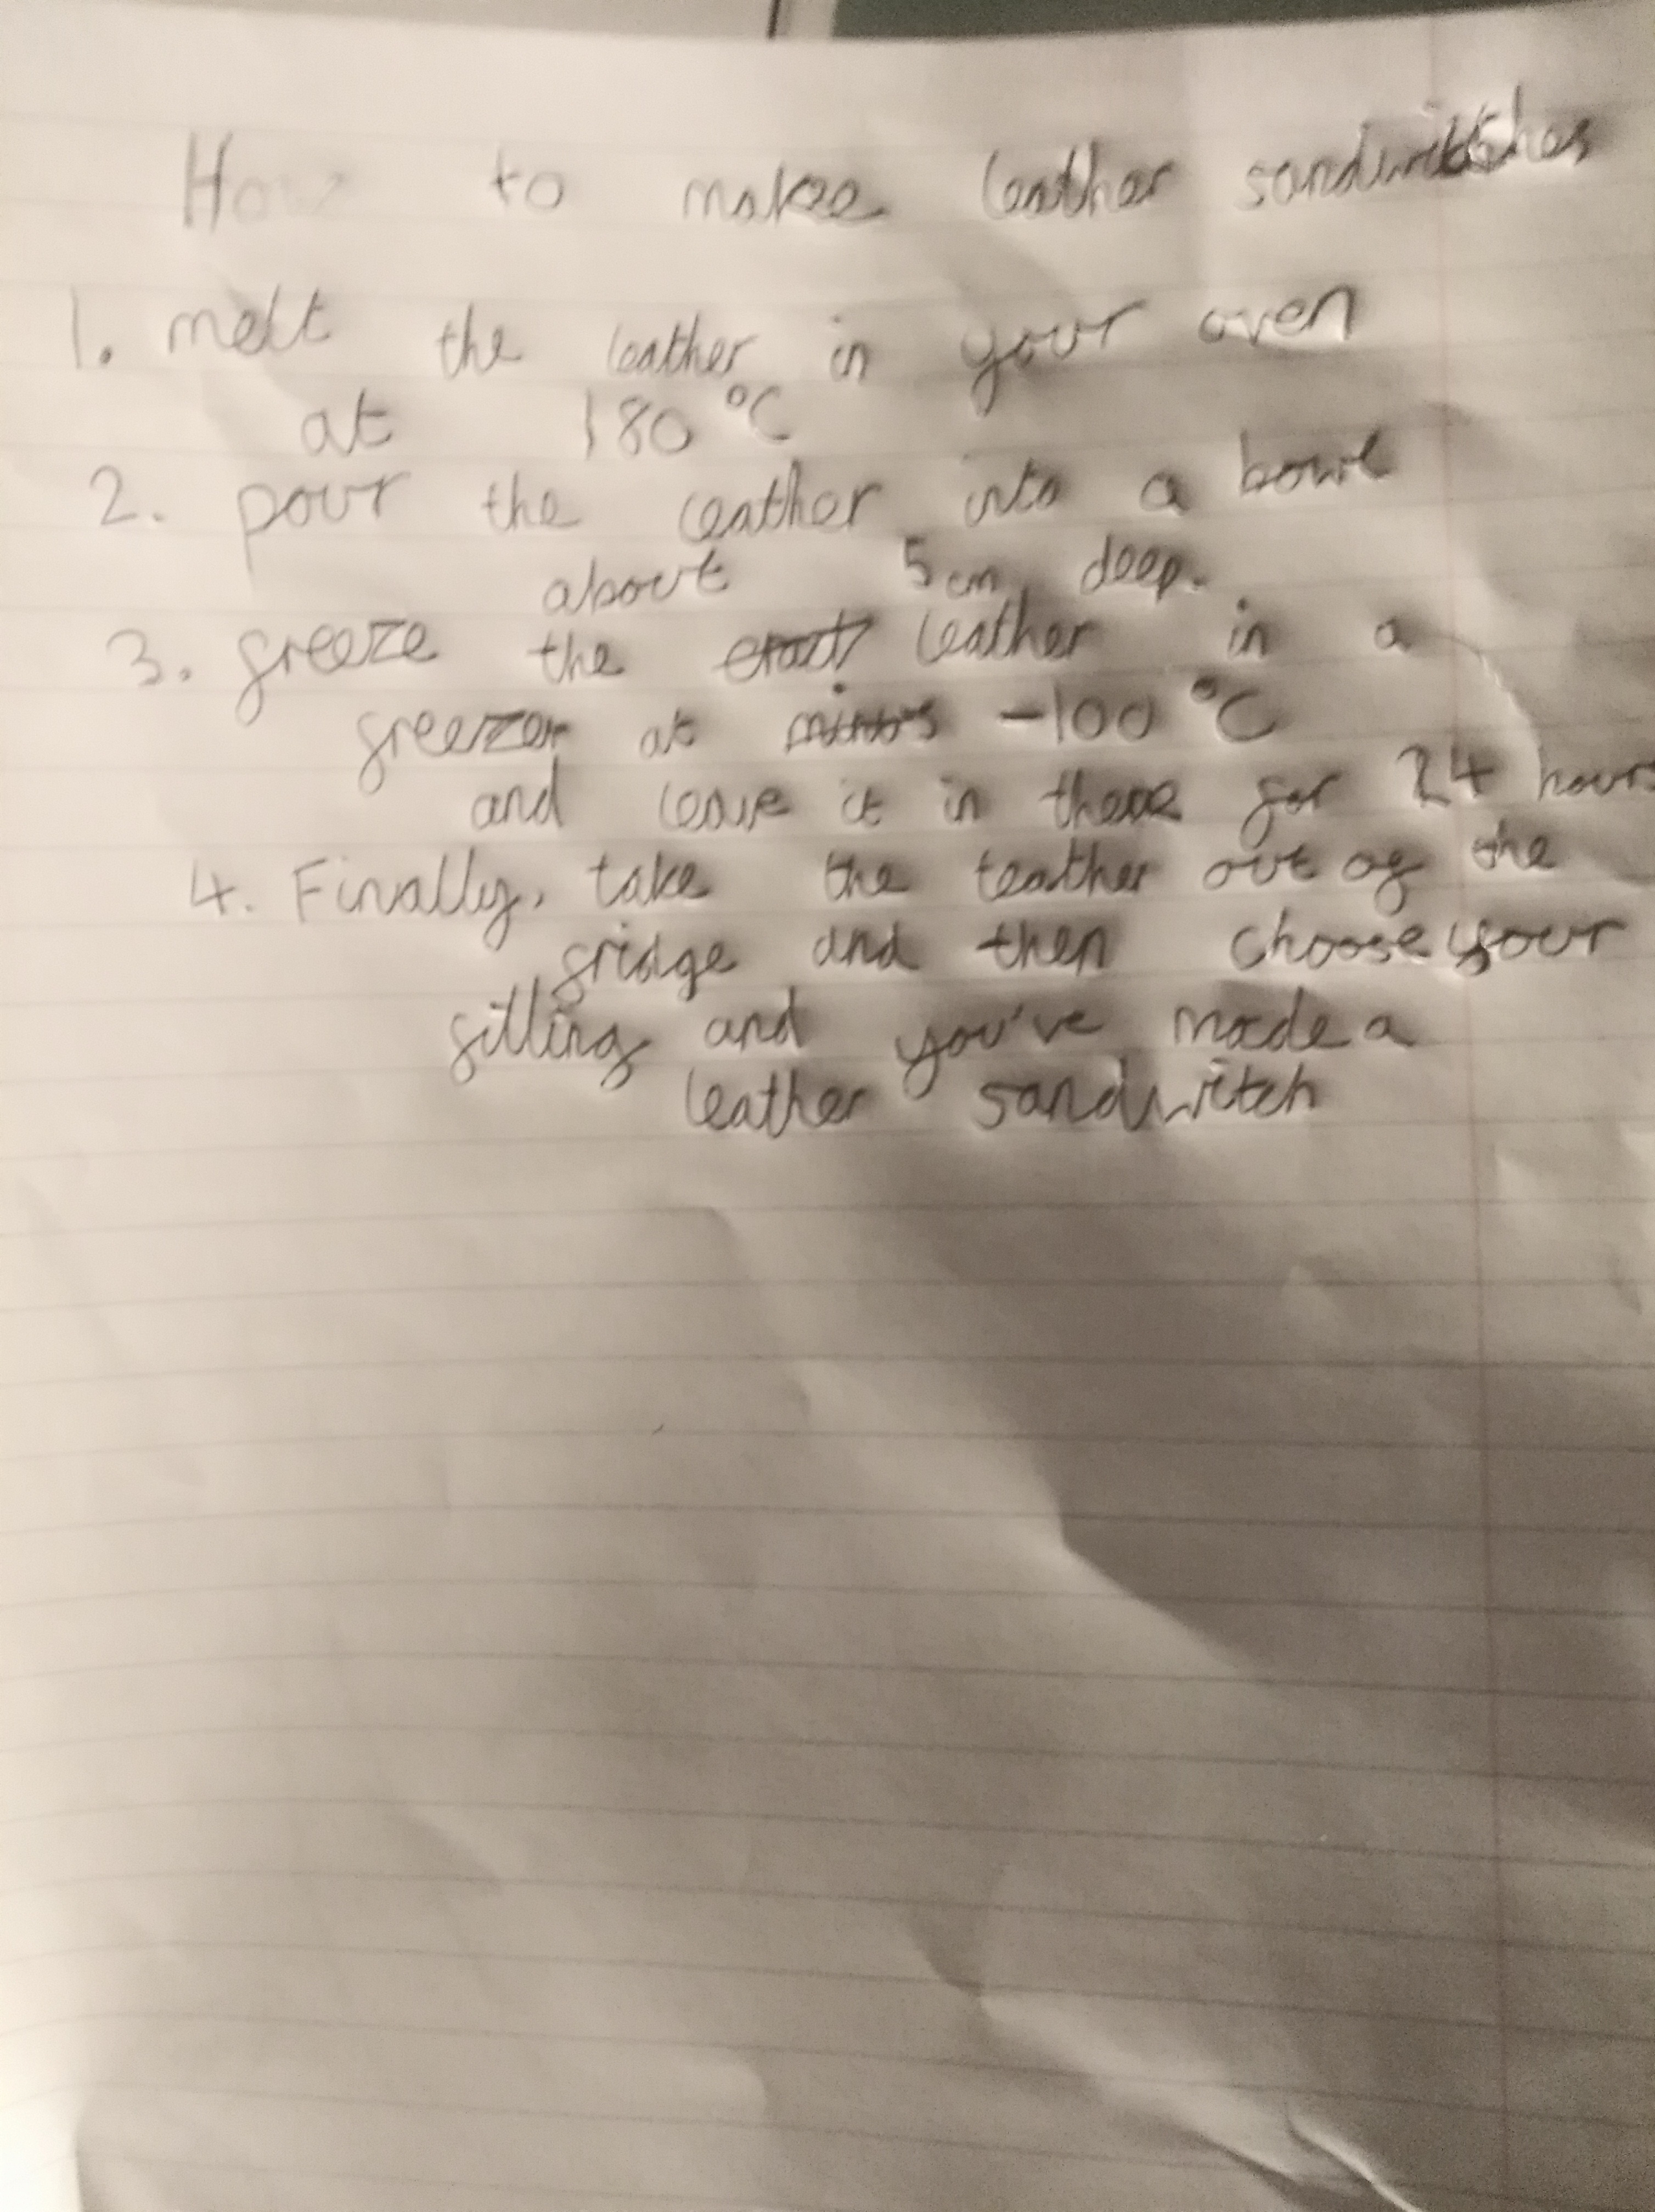 How to make leather sandwitches
1. melt the leather in your oven
at 180 °C
2. pour the leather into a bowl
about 5cm deep.
3. freeze the leather in a
freezer at minus -100 °C
and leave it in there for 24 hours
4. Finally, take the leather out of the
fridge and then choose your
filling and you've made a
leather sandwitch